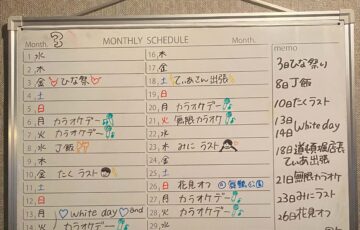 Month. 3 MONTHLY SCHEDULE Month.
1 水
2 木
3 金 ひな祭り
4 土
5 日
6 月 カラオケデー
7 火 カラオケデー
8 水 丁飯
9 木
10 金 たくラスト
11 土
12 日
13 月 white day
14 火 カラオケデー
16 木
17 金
18 土 てぃあさん出張
19 日
20 月 カラオケデー
21 火 無限カラオケ
22 水
23 木 みにラスト
24 金
25 土
26 日 花見オフ
27 月 カラオケデー
28 火 カラオケデー
29 水
memo
3日ひな祭り
8日丁飯
10日たくラスト
13日
14日 White day
18日
てぃあ出張
21日無限カラオケ
23日みにラスト
26日花見オフ